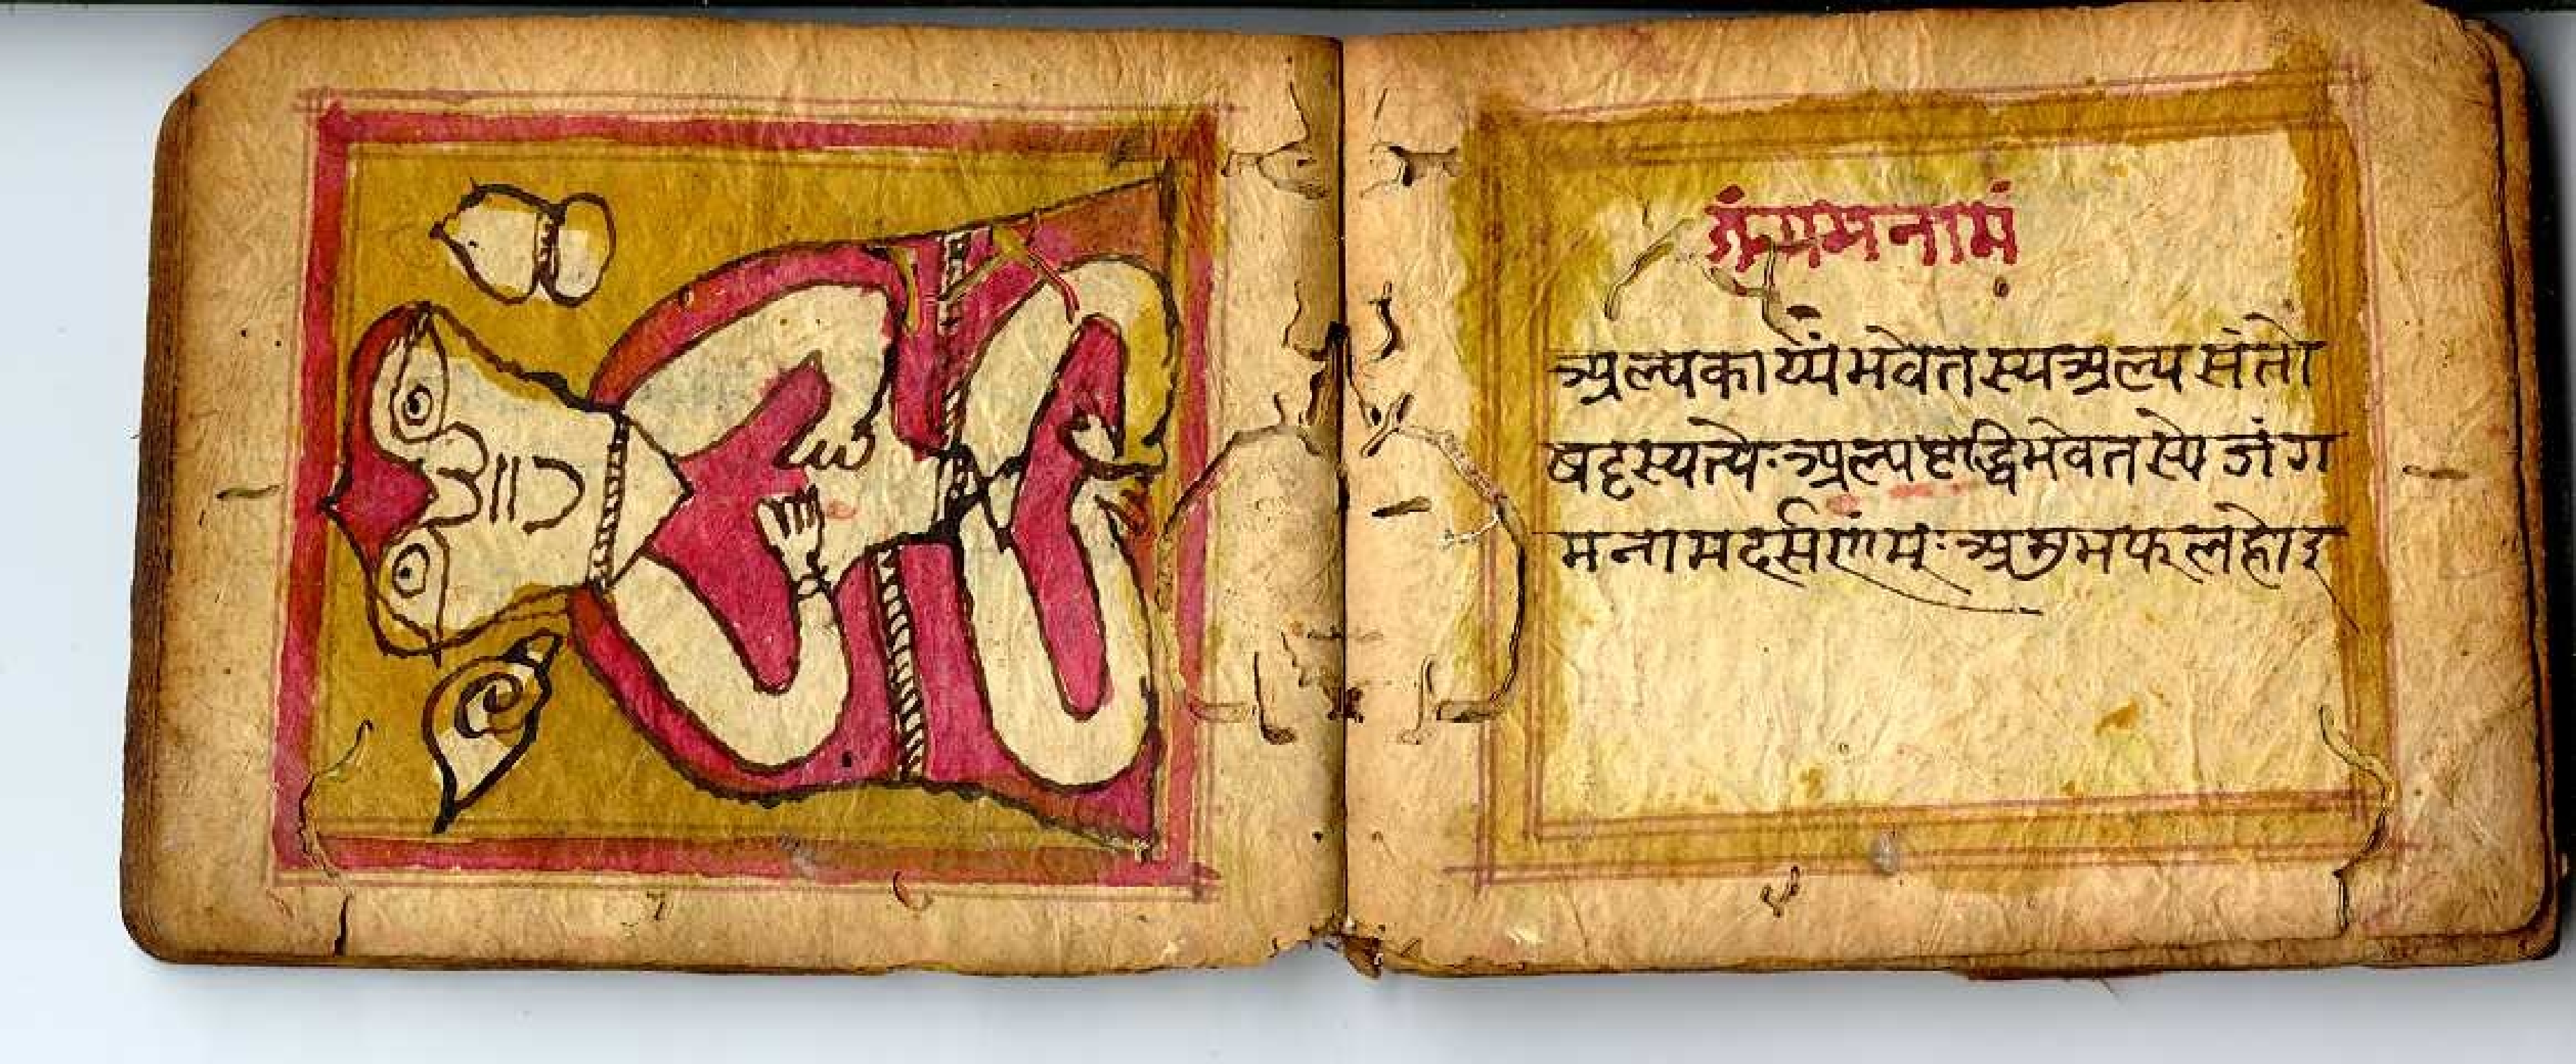 अल्पकार्य्यंभवेतस्यअल्पसंतो
षदृस्यत्येःअल्पबृद्धिभवेतस्ये जंग
मनामदर्सणंमः अशुभफलहोइ